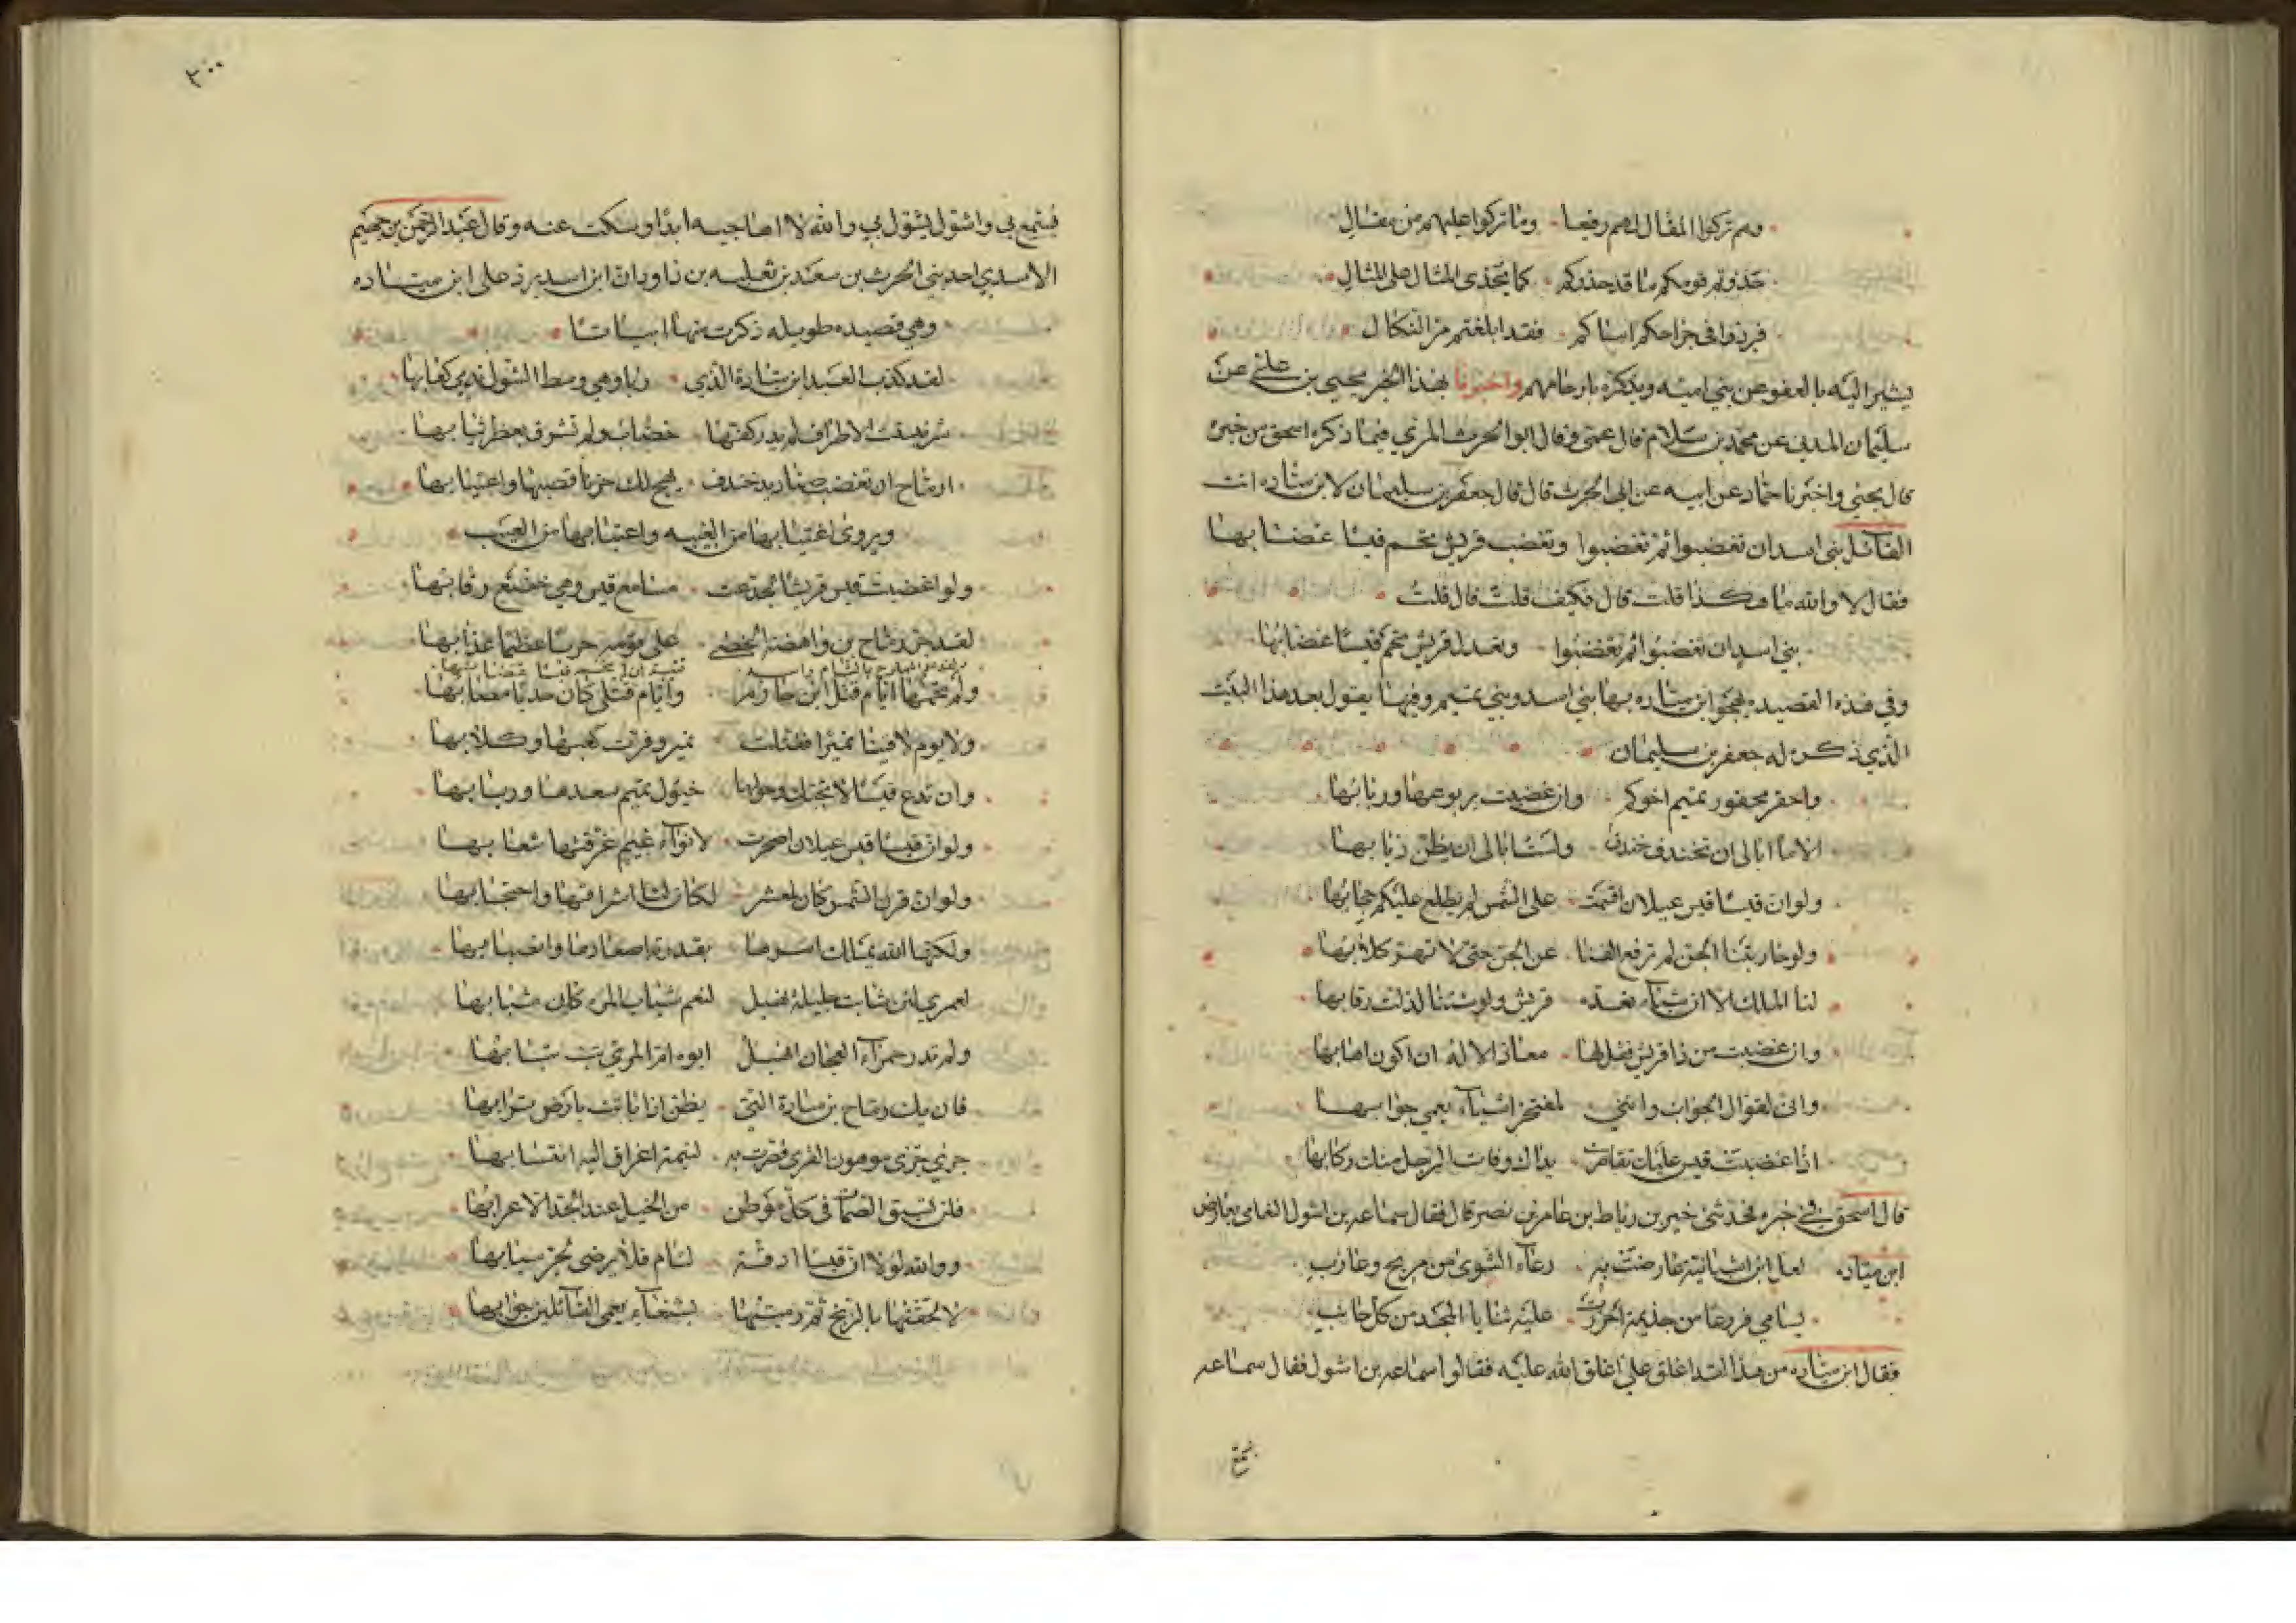 وهم تركوا المقال لهم رفيعا وما تركوا عليهم من مقال
حذوتم قومكم ما قد حذوكم كما يحتذى المثال على المثال
فردوا في جراحكم اساكم فقد ابلغتم مر النكال
يشير اليه بالعفو عن بني اميه ويذكره بارحامهم واخبرنا بهذا الخبر يحيى بن علي عن
سليمان المديني عن محمد بن سلام قال عمى وقال ابو الحرث المري فيما ذكره اسحق من خبره
قال يحيى واخبرنا حماد عن ابيه عن ابى الحرث قال قال جعفر بن سليمان لابن ميّاده انت
القآئل بنى اسد ان تغضبوا ثم تغضبوا وتغضب قريش تحم قيسا غضابها
فقال لا والله ما هكذا قلت قال فكيف قلت قال قلت
بني اسد ان تغضبوا ثم تغضبوا وتعدل قريش تحم قيسا غضابها
وفي هذه القصيده يهجو ابن مياده بها بني اسد وبني تميم وفيها يقول بعد هذا البيت
الذي ذكره له جعفر بن سليمان
واحقر محقور تميم اخوكم وان غضبت يربوعها وربابها
الا ما ابالى ان تخندف خندف ولست ابالى ان يطن ذبابها
ولو ان قيسا قيس عيلان اقسمت على الشمس لم يطلع عليكم حجابها
ولو حاربتنا الجن لم نرفع القنا عن الجن حتى لا تهر كلابها
لنا الملك الا ان شيئا تعده قريش ولو شئنا لذلت رقابها
وان غضبت من ذا قريش فقل لها معاذ الاله ان اكون اهابها
وانى لقوال الجواب وانني لمفتجر اشيآء يعيي جوابها
اذا غضبت قيس عليك تقاصرت يداك وفات الرجل منك ركابها
قال اسحق في خبره فحدثنى خير بن رباط بن عامر بن نصر قال فقال سماعه بن اشول النعامى يعارض
ابن مياده لعل ابن اشبانية عارضت به رعآء الشوى من مريح وعازب
يسامي فروعا من خذيمة احرزت عليه ثنايا المجد من كل جانب
فقال ابن مياده من هذا لقد اغلق علي اغلق الله عليه فقالوا سماعه بن اشول فقال سماعه
٣٠٠
فيسمع بي واشول يشول بي والله لا اهاجيه ابدا وسكت عنه وقال عبد الرحمن بن جهيم
الاسدي احد بني الحرث بن سعد بن ثعلبه بن داودان ابن اسد يرد على ابن ميّاده
وهي قصيده طويله ذكرت منها ابياتا
لقد كذب العبد ابن ميّادة الذي ربا وهي وسط الشول تدمى كعابها
شرنبثت الاطراف لم يد كفتها خضاب ولم تشرق بعطر ثيابها
ارماح ان تغضب صناديد خندف يهج لك حربا قصبها واعتيابها
ويروى اغتيابها من الغيبه واعتيابها من العيب
ولو اغضبت قيس قريشا لجدعت مسامع قيس وهي خضع رقابها
لقد جر رماح بن واهصة الخصى على قومه حربا عظيما عذابها
ولم تحمها ايام قتل ابن حازم وايام قتلى كان خديا مصابها
ولا يوم لاقينا نميرا فقتلت نمير وفرت كعبها وكلابها
وان تدع قيسا لا تجبك وحولها خيول تميم سعدها وربابها
ولو ان قيسا قيس عيلان اصحرت لانوآء غيم غرقتها شعابها
ولو ان قرن الشمس كان لمعشر لكان لنا اشراقها واحتجابها
ولكنها الله يملك امرها بقدرته اصعادها وانصبابها
لعمري لئن شابت حليلة نهبل لنعم شباب المرء كان شبابها
ولم تدر حمرآء العجان انهبل ابوه ام المري تب تبابها
فان يك رماح بن ميادة التى يظن اذا باتت بارض ترابها
جرى جرى موهون القرى قصرت به لئيمة اعراق اليه انتسابها
فلن تسبق الضمّار في كل موطن من الخيل عند الجد الا عرابها
ووالله لولا ان قيسا ادقة لئام فلا يرضى لحر سبابها
لالحقتها بالزنج ثم رميتها بشنعآء يعيي القآئلين جوابها